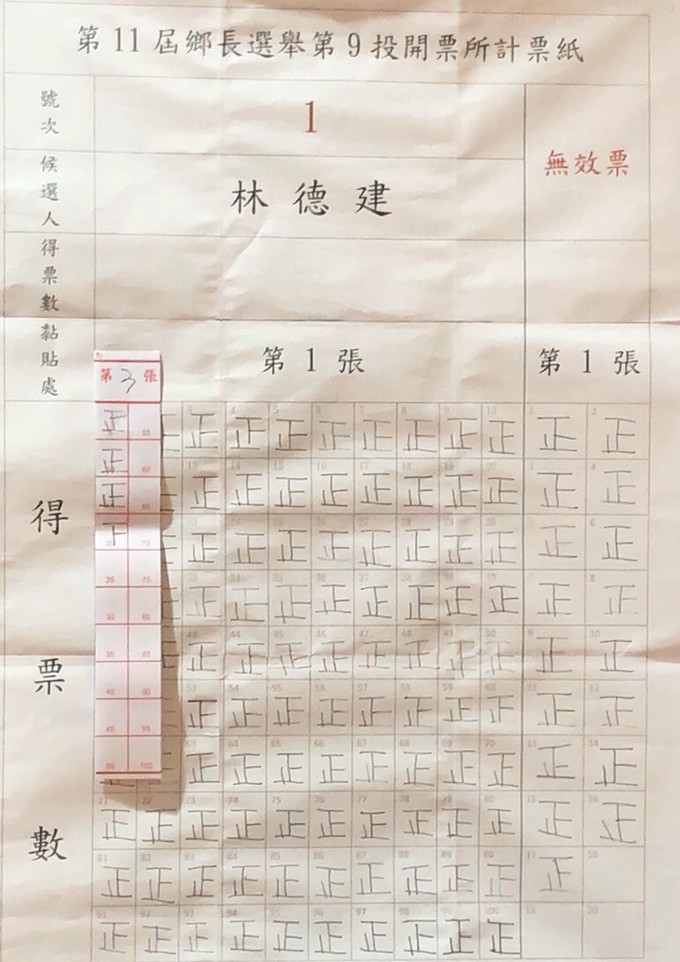 第11屆鄉長選舉第9投開票所計票紙
號次
1
無效票
候選人
林德建
得票數黏貼處
第1張
第1張
第3張
得票數
正 55
正 60
正 65
20 70
25 75
30 80
35 85
40 90
45 95
50 100
正 正 正 正 正 正 正 正 正 正
正 正 正 正 正 正 正 正 正 正
正 正 正 正 正 正 正 正 正 正
正 正 正 正 正 正 正 正 正 正
正 正 正 正 正 正 正 正 正 正
正 正 正 正 正 正 正 正 正 正
正 正 正 正 正 正 正 正 正 正
正 正 正 正 正 正 正 正 正 正 正 正
正 正 正 正 正 正 正 正 正 正 正
正 正 正 正 正 正 正 正 正 正